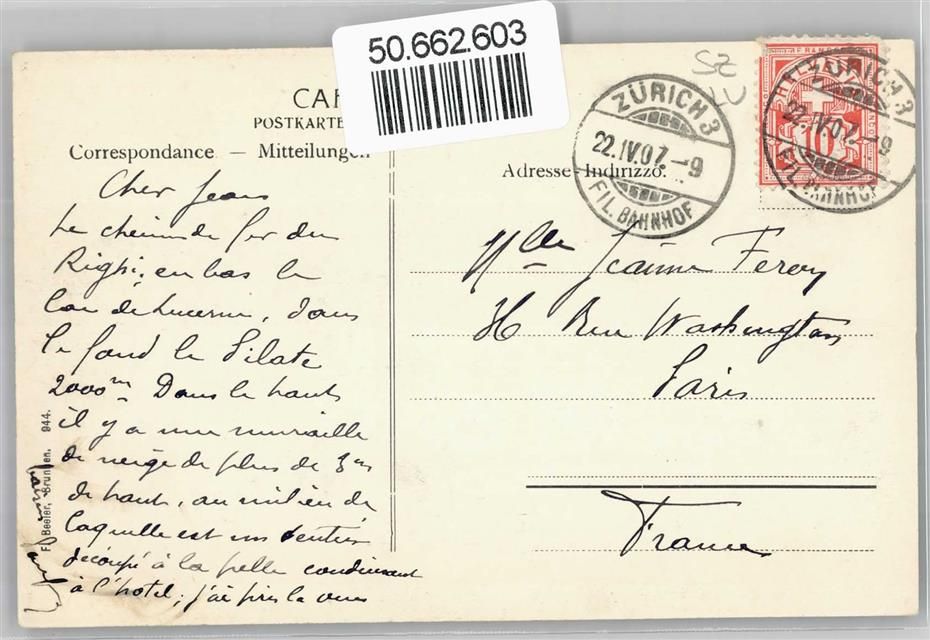 50.662.603
SZ
ZÜRICH 3
22.IV.07.-9
FIL. BAHNHOF
HELVETIA
FRANCO
10
ZÜRICH 3
22.IV.07.-9
FIL. BAHNHOF
CAR
POSTKARTE
Correspondance — Mitteilungen
Adresse-Indirizzo.
Cher Jean
Le chemin de fer du
Righi, en bas le
lac de Lucerne, dans
le fond le Pilate
2000m Dans le haut
il y a une muraille
de neige de plus de 3m
de haut, au milieu de
laquelle est un sentier
découpé à la pelle conduisant
à l'hotel; j'ai pris la vue
Mlle Jeanne Feroy
Rue Washington
Paris
France
Fr. Beeler, Brunnen. 944.